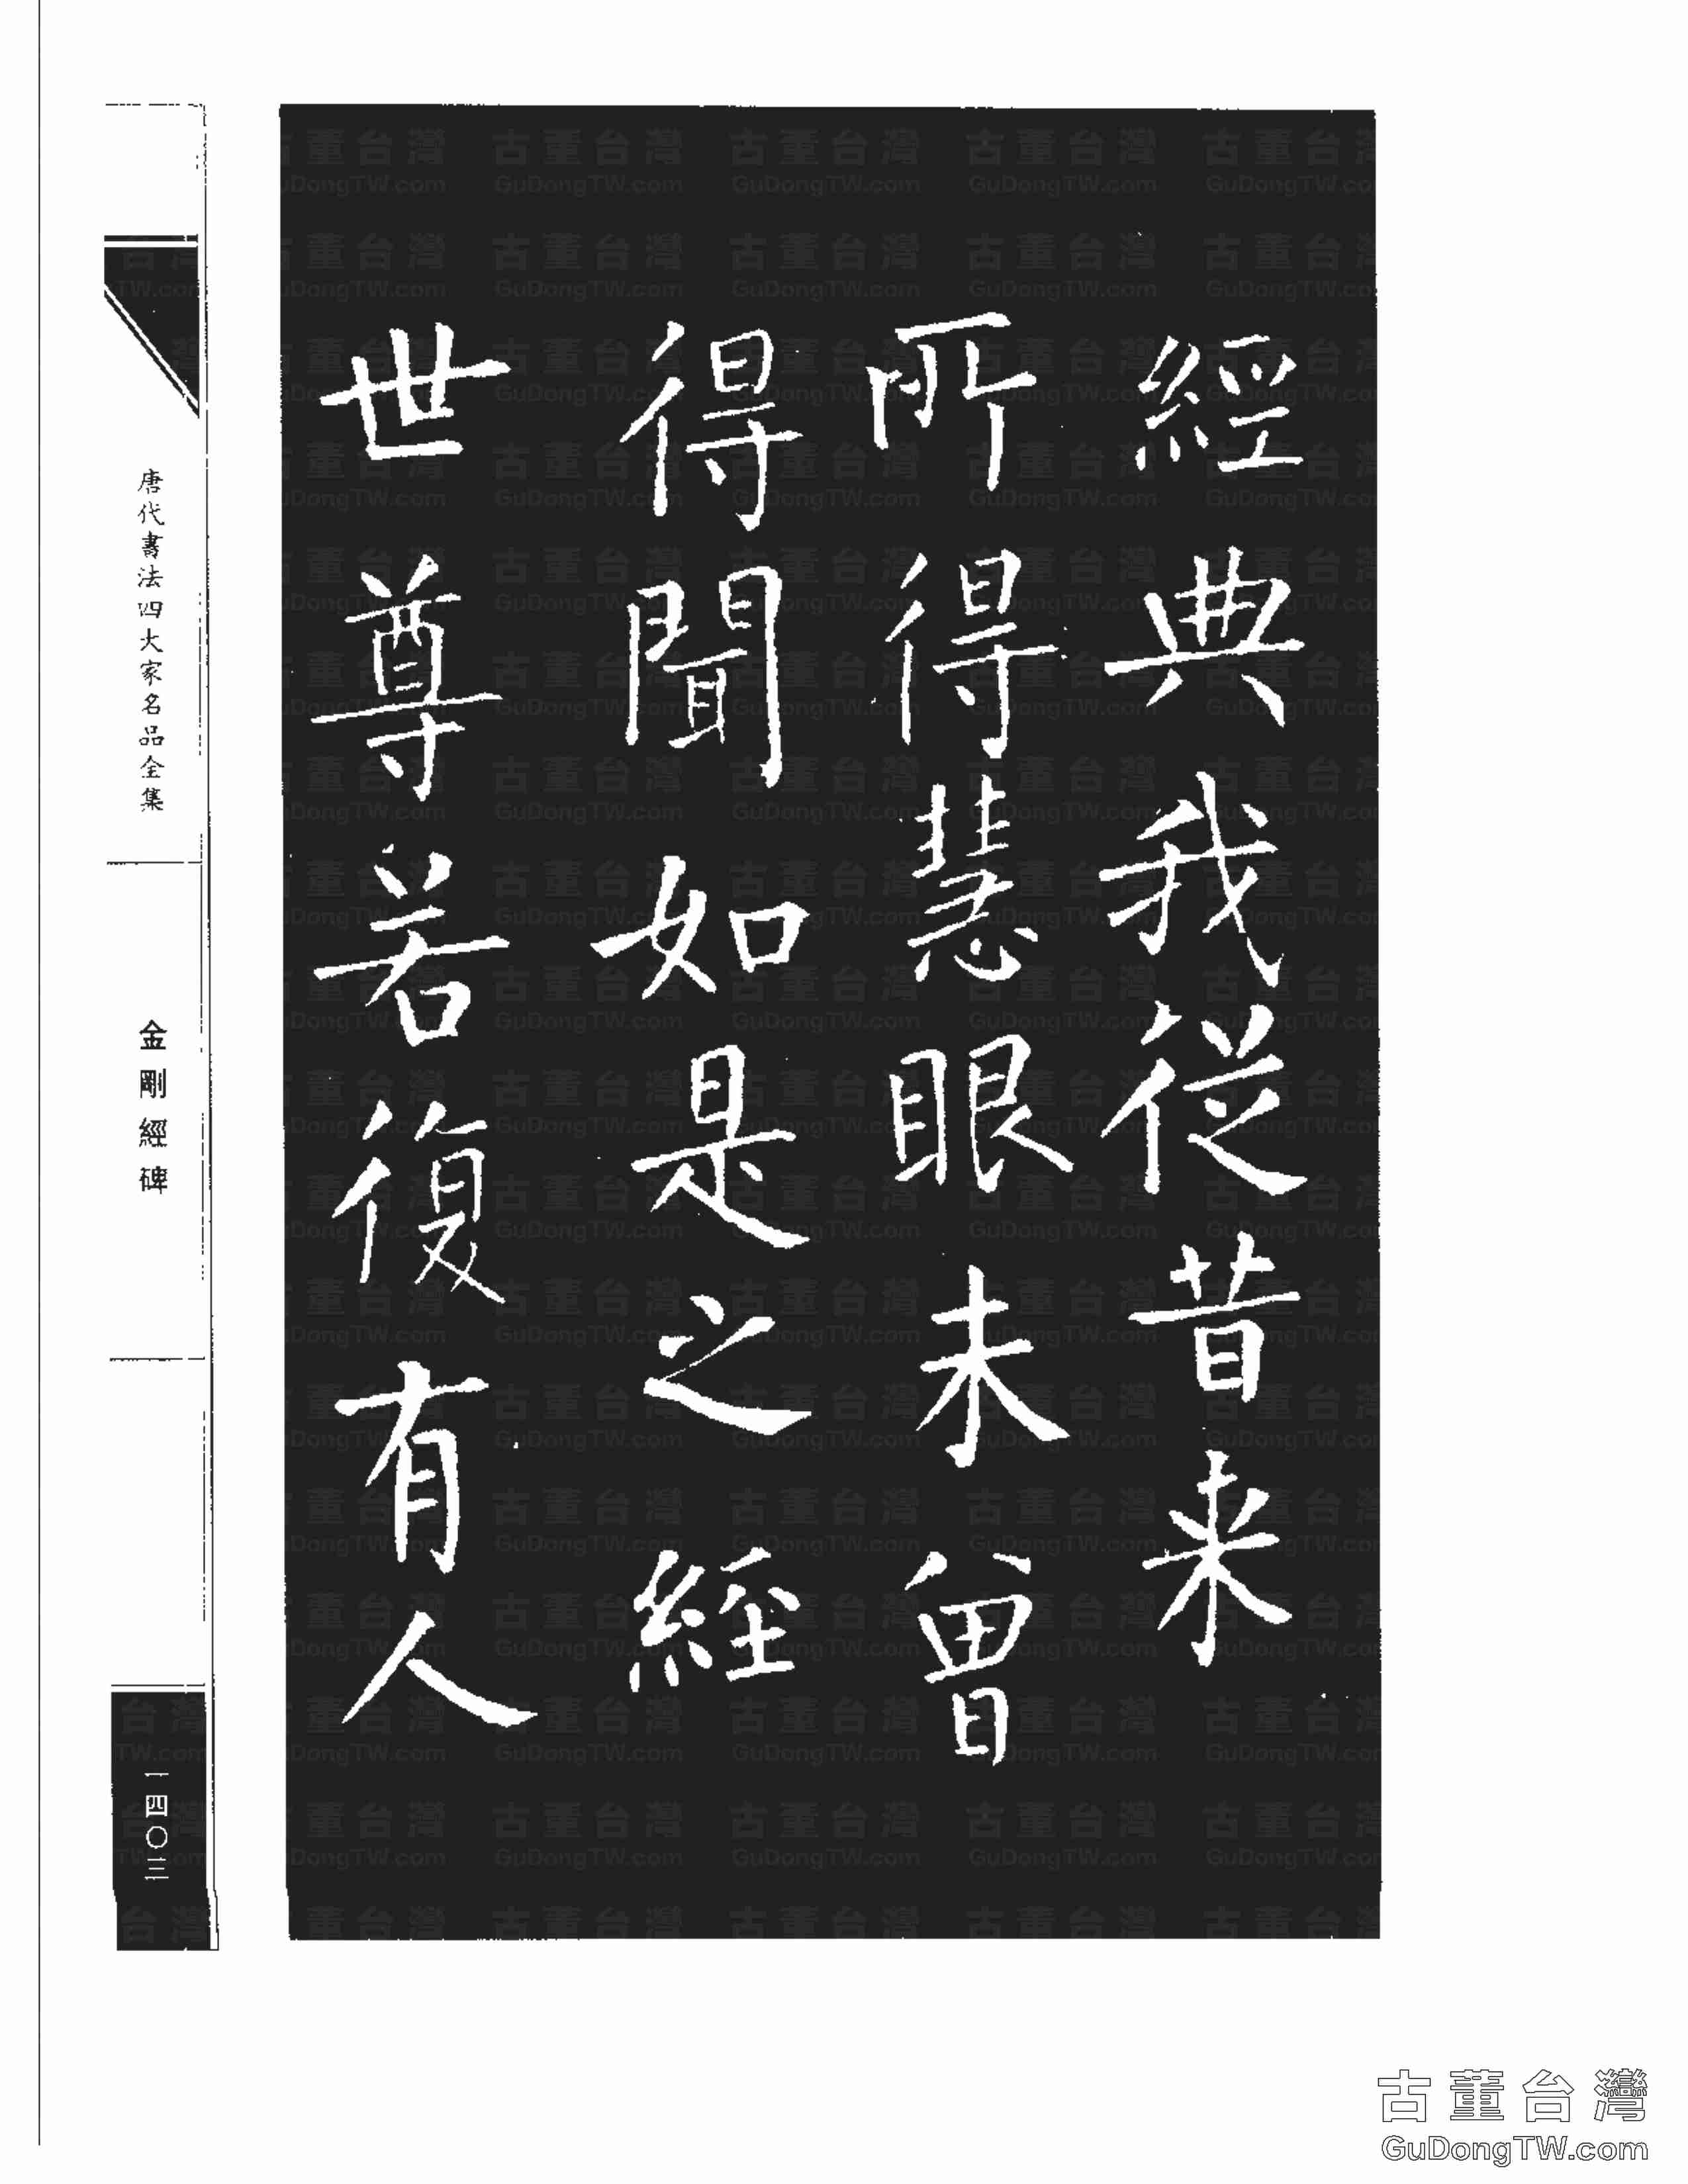 經典我從昔来
所得慧眼未曾
得聞如是之經
世尊若復有人
唐代書法四大家名品全集
金剛經碑
一四〇三
古董台灣
GuDongTW.com